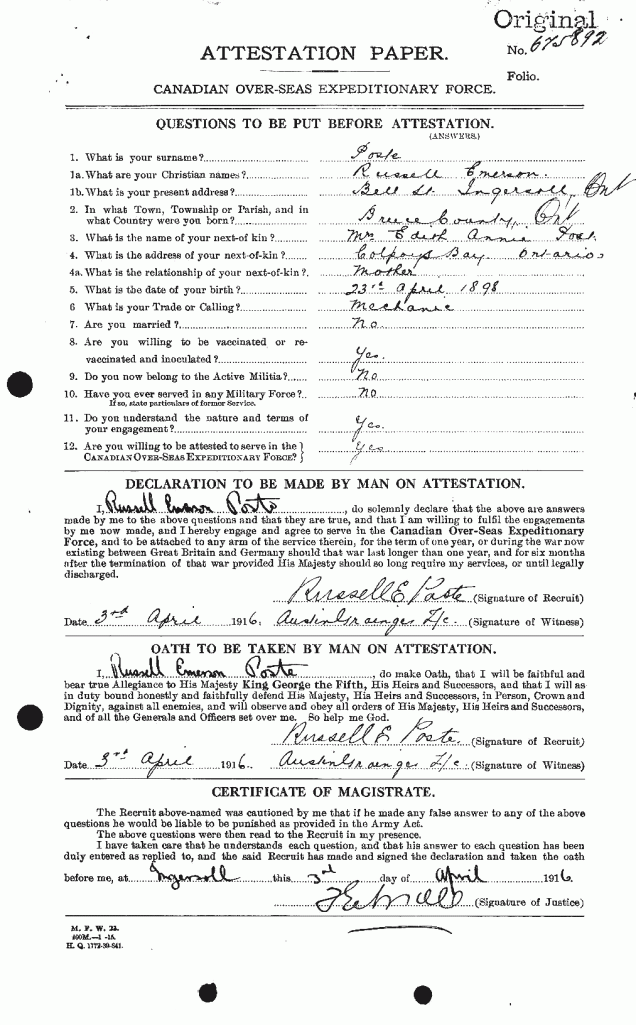 Original
No. 675892
ATTESTATION PAPER.
Folio.
CANADIAN OVER-SEAS EXPEDITIONARY FORCE.
QUESTIONS TO BE PUT BEFORE ATTESTATION.
(ANSWERS.)
1. What is your surname? Poste
1a. What are your Christian names? Russell Emerson.
1b. What is your present address? Bell St. Ingersoll, Ont
2. In what Town, Township or Parish, and in
what Country were you born? Bruce County, Ont
3. What is the name of your next-of kin? Mrs Edith Annie Post.
4. What is the address of your next-of-kin? Colpoys Bay. Ontario
4a. What is the relationship of your next-of-kin? Mother
5. What is the date of your birth? 23rd April 1898
6 What is your Trade or Calling? Mechanic
7. Are you married? No.
8. Are you willing to be vaccinated or re-
vaccinated and inoculated? Yes.
9. Do you now belong to the Active Militia? No
10. Have you ever served in any Military Force? No
If so, state particulars of former Service.
11. Do you understand the nature and terms of
your engagement? Yes.
12. Are you willing to be attested to serve in the
CANADIAN OVER-SEAS EXPEDITIONARY FORCE? Yes
DECLARATION TO BE MADE BY MAN ON ATTESTATION.
I, Russell Emerson Poste, do solemnly declare that the above are answers
made by me to the above questions and that they are true, and that I am willing to fulfil the engagements
by me now made, and I hereby engage and agree to serve in the Canadian Over-Seas Expeditionary
Force, and to be attached to any arm of the service therein, for the term of one year, or during the war now
existing between Great Britain and Germany should that war last longer than one year, and for six months
after the termination of that war provided His Majesty should so long require my services, or until legally
discharged.
Russell E Poste (Signature of Recruit)
Date 3rd April 1916. Austin Grainger L/c. (Signature of Witness)
OATH TO BE TAKEN BY MAN ON ATTESTATION.
I, Russell Emerson Poste, do make Oath, that I will be faithful and
bear true Allegiance to His Majesty King George the Fifth, His Heirs and Successors, and that I will as
in duty bound honestly and faithfully defend His Majesty, His Heirs and Successors, in Person, Crown and
Dignity, against all enemies, and will observe and obey all orders of His Majesty, His Heirs and Successors,
and of all the Generals and Officers set over me. So help me God.
Russell E Poste (Signature of Recruit)
Date 3rd April 1916. Austin Grainger L/c (Signature of Witness)
CERTIFICATE OF MAGISTRATE.
The Recruit above-named was cautioned by me that if he made any false answer to any of the above
questions he would be liable to be punished as provided in the Army Act.
The above questions were then read to the Recruit in my presence.
I have taken care that he understands each question, and that his answer to each question has been
duly entered as replied to, and the said Recruit has made and signed the declaration and taken the oath
before me, at Ingersoll this 3rd day of April 1916
(Signature of Justice)
M. F. W. 23.
H. Q. 1772-39-841.